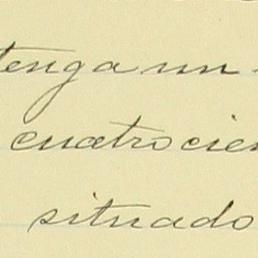 tenga un
cuatrocien
situado